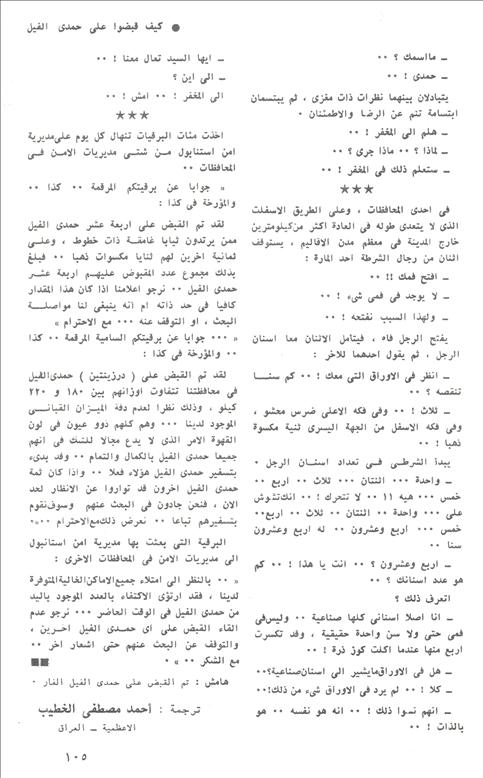 ● كيف قبضوا على حمدى الفيل
ـ مااسمك ؟ ٠٠
ـ حمدى ! ٠٠
يتبادلان بينهما نظرات ذات مغزى ، ثم يبتسمان
ابتسامة تنم عن الرضا والاطمئنان ٠
ـ هلم الى المغفر ! ٠٠
ـ لماذا ؟ ٠٠ ماذا جرى ؟ ٠٠
ـ ستعلم ذلك فى المغفر ! ٠٠
★★★
فى احدى المحافظات ، وعلى الطريق الاسفلت
الذى لا يتعدى طوله فى العادة اكثر من كيلومترين
خارج المدينة فى معظم مدن الاقاليم ، يستوقف
اثنان من رجال الشرطة احد المارة :
ـ افتح فمك !! ٠٠
ـ لا يوجد فى فمى شىء ! ٠٠
ـ ولهذا السبب نفتحه ! ٠٠
يفتح الرجل فاه ، فيتأمل الاثنان معا اسنان
الرجل ، ثم يقول احدهما للآخر :
ـ انظر فى الاوراق التى معك ! ٠٠ كم سنا
تنقصه ؟ ٠٠
ـ ثلاث ! ٠٠ وفى فكه الاعلى ضرس محشو ،
وفى فكه الاسفل من الجهة اليسرى ثنية مكسوة
ذهبا ! ٠٠
يبدأ الشرطى فى تعداد اسنان الرجل ٠
ـ واحدة ٠٠٠ اثنتان ٠٠٠ ثلاث ٠٠ اربع ٠٠
خمس ٠٠٠ هيه ١١ ٠٠ لا تتحرك ! ٠٠ انك تشوش
على ٠٠٠ واحدة ٠٠ اثنتان ٠٠ ثلاث ٠٠ اربع٠٠
خمس ٠٠٠ اربع وعشرون ٠٠ له اربع وعشرون
سنا ٠٠
ـ اربع وعشرون ؟ ٠٠ انت يا هذا ! ٠٠ كم
هو عدد اسنانك ؟ ٠٠
اتعرف ذلك ؟
ـ انا اصلا اسنانى كلها صناعية ٠٠ وليس فى
فمى حتى ولا سن واحدة حقيقية ، وقد تكسرت
اربع منها عندما اكلت كوز ذرة ! ٠٠
ـ هل فى الاوراق مايشير الى اسنان صناعية؟٠٠
ـ كلا ! ٠٠ لم يرد فى الاوراق شىء من ذلك!٠٠
ـ انهم نسوا ذلك ! ٠٠ انه هو نفسه ٠٠ هو
بالذات ! ٠٠
ـ ايها السيد تعال معنا ! ٠٠
ـ الى اين ؟
الى المغفر ! ٠٠ امش ! ٠٠
★★★
اخذت مئات البرقيات تنهال كل يوم على مديرية
امن استنابول من شتى مديريات الامن فى
المحافظات ٠٠
« جوابا عن برقيتكم المرقمة ٠٠ كذا ٠٠
والمؤرخة فى كذا :
لقد تم القبض على اربعة عشر حمدى الفيل
ممن يرتدون ثيابا غامقة ذات خطوط ، وعلى
ثمانية اخرين لهم ثنايا مكسوات ذهبا ٠٠ فبلغ
بذلك مجموع عدد المقبوض عليهم اربعة عشر
حمدى الفيل ٠٠ نرجو اعلامنا اذا كان هذا المقدار
كافيا فى حد ذاته ام انه ينبغى لنا مواصلة
البحث ، او التوقف عنه ٠٠٠ مع الاحترام »
« ٠٠٠ جوابا عن برقيتكم السامية المرقمة ٠٠ كذا
٠٠ والمؤرخة فى كذا :
لقد تم القبض على ( درزينتين ) حمدى الفيل
فى محافظتنا تتفاوت اوزانهم بين ١٨٠ و ٢٢٠
كيلو ، وذلك نظرا لعدم دقة الميزان القبانى
الموجود لدينا ٠٠٠ وهم كلهم ذوو عيون فى لون
القهوة الامر الذى لا يدع مجالا للشك فى انهم
جميعا حمدى الفيل بالكمال والتمام ٠٠ وقد بدىء
بتسفير حمدى الفيل هؤلاء فعلا ٠٠ واذا كان ثمة
حمدى الفيل اخرون قد تواروا عن الانظار لحد
الان ، فنحن جادون فى البحث عنهم وسوف نقوم
بتسفيرهم تباعا ٠٠ نعرض ذلك مع الاحترام ٠٠»٠
البرقية التى بعثت بها مديرية امن استانبول
الى مديريات الامن فى المحافظات الاخرى :
« ٠٠ بالنظر الى امتلاء جميع الاماكن الخالية المتوفرة
لدينا ، فقد ارتؤى الاكتفاء بالعدد الموجود باليد
من حمدى الفيل فى الوقت الحاضر ٠٠٠ نرجو عدم
القاء القبض على اى حمدى الفيل اخرين ،
والتوقف عن البحث عنهم حتى اشعار اخر ٠٠
مع الشكر ٠٠ » ٠
هامش : تم القبض على حمدى الفيل الفار ٠
ترجمة : أحمد مصطفى الخطيب
الاعظمية ـ العراق
١٠٥